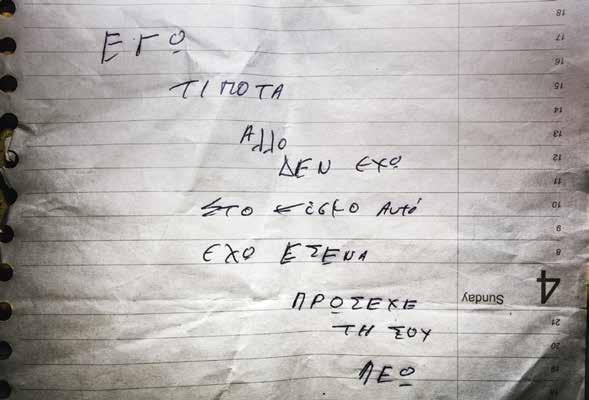 ΕΓΩ
ΤΙΠΟΤΑ
Αλλο
ΔΕΝ ΕΧΩ
ΣΤΟ Αυτό
ΕΧΟ ΕΣΕΝΑ
ΠΡΟΣΕΧΕ
ΤΗ ΣΟΥ
ΛΕΩ
18
17
16
15
14
13
12
11
10
9
8
4 Sunday
21
20
19